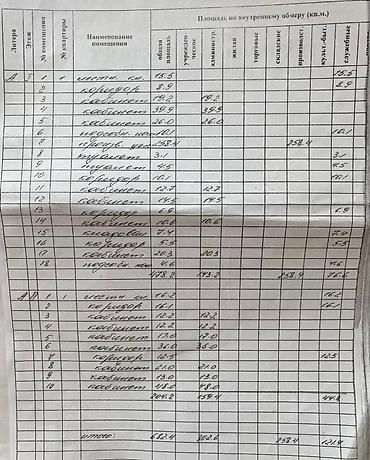 Площадь по внутреннему обмеру (кв.м.)
Литера Этаж № помещения № квартиры Наименование помещения общая площадь учрежден-ческие администр. жилая торговые складские производст. культ.-быт. служебные
А I 1 1 лестн. кл. 15.5 15.5
2 коридор 8.9 8.9
3 кабинет 19.2 19.2
4 кабинет 39.9 39.9
5 кабинет 26.0 26.0
6 подсобн. 10.1 10.1
7 произв. цех 258.4 258.4
8 туалет 3.1 3.1
9 туалет 4.5 4.5
10 коридор 10.1 10.1
11 кабинет 12.7 12.7
12 кабинет 14.5 14.5
13 коридор 6.9 6.9
14 кабинет 10.6 10.6
15 кладовая 7.4 7.4
16 коридор 5.5 5.5
17 кабинет 20.3 20.3
18 подсобн. 4.6 4.6
478.2 143.2 258.4 76.6
А II 1 1 лестн. кл. 16.2 16.2
2 коридор 16.1 16.1
3 кабинет 12.2 12.2
4 кабинет 12.2 12.2
5 кабинет 17.0 17.0
6 кабинет 36.0 36.0
7 коридор 12.5 12.5
8 кабинет 21.0 21.0
9 кабинет 13.0 13.0
10 кабинет 48.0 48.0
204.2 159.4 44.8
итого: 682.4 302.6 258.4 121.4